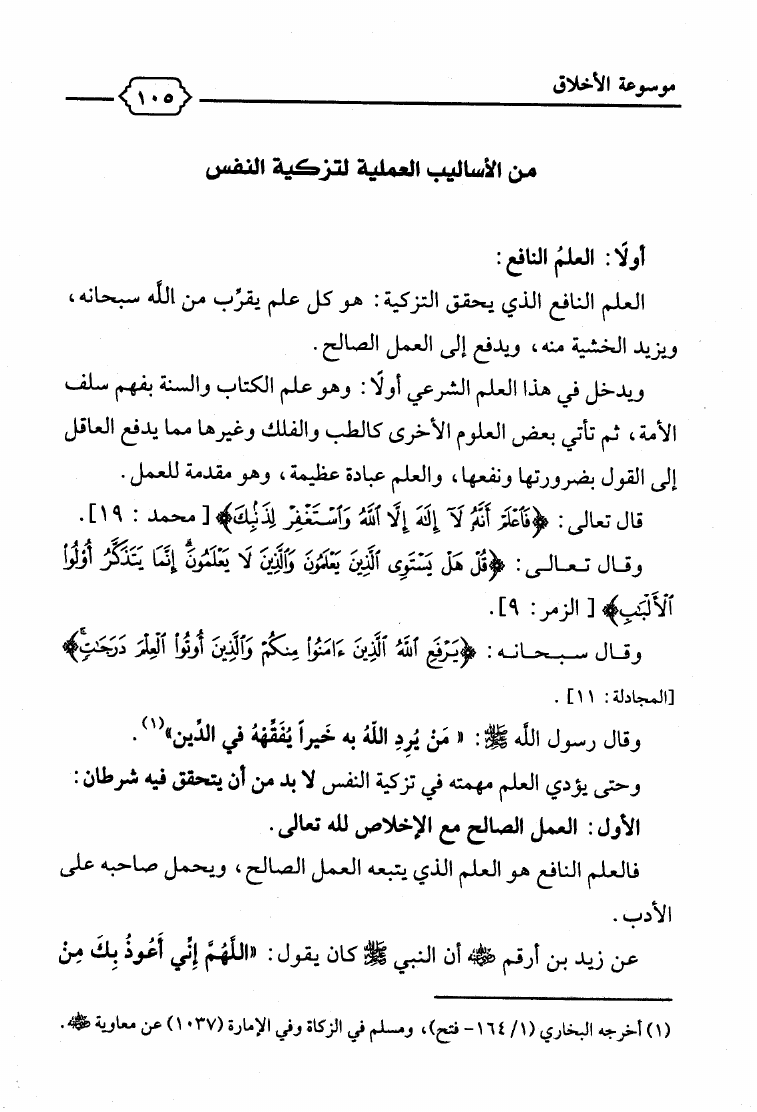 موسوعة الأخلاق
١٠٥
من الأساليب العملية لتزكية النفس
أولًا: العلمُ النافع:
العلم النافع الذي يحقق التزكية: هو كل علم يقرِّب من اللَّه سبحانه،
ويزيد الخشية منه، ويدفع إلى العمل الصالح.
ويدخل في هذا العلم الشرعي أولًا: وهو علم الكتاب والسنة بفهم سلف
الأمة، ثم تأتي بعض العلوم الأخرى كالطب والفلك وغيرها مما يدفع العاقل
إلى القول بضرورتها ونفعها، والعلم عبادة عظيمة، وهو مقدمة للعمل.
قال تعالى: ﴿فَٱعْلَمْ أَنَّهُۥ لَآ إِلَٰهَ إِلَّا ٱللَّهُ وَٱسْتَغْفِرْ لِذَنۢبِكَ﴾ [محمد: ١٩].
وقال تعالى: ﴿قُلْ هَلْ يَسْتَوِى ٱلَّذِينَ يَعْلَمُونَ وَٱلَّذِينَ لَا يَعْلَمُونَۗ إِنَّمَا يَتَذَكَّرُ أُو۟لُوا۟
ٱلْأَلْبَٰبِ﴾ [الزمر: ٩].
وقال سبحانه: ﴿يَرْفَعِ ٱللَّهُ ٱلَّذِينَ ءَامَنُوا۟ مِنكُمْ وَٱلَّذِينَ أُوتُوا۟ ٱلْعِلْمَ دَرَجَٰتٍۚ﴾
[المجادلة: ١١].
وقال رسول اللَّه ﷺ: «مَنْ يُرِدِ اللَّهُ به خَيراً يُفَقِّهْهُ في الدِّين»(١).
وحتى يؤدي العلم مهمته في تزكية النفس لا بد من أن يتحقق فيه شرطان:
الأول: العمل الصالح مع الإخلاص لله تعالى.
فالعلم النافع هو العلم الذي يتبعه العمل الصالح، ويحمل صاحبه على
الأدب.
عن زيد بن أرقم رضي الله عنه أن النبي ﷺ كان يقول: «اللَّهُمَّ إِنِّي أَعُوذُ بِكَ مِنْ
(١) أخرجه البخاري (١/ ١٦٤- فتح)، ومسلم في الزكاة وفي الإمارة (١٠٣٧) عن معاوية رضي الله عنه.